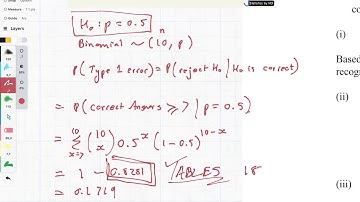 Layers
H₀ : p = 0.5
n
Binomial ~ (10, p)
P(Type 1 error) = P(reject H₀ | H₀ is correct)
= P(correct Answers ≥ 7 | p = 0.5)
= 10 Σ x=7 (10 x) 0.5ˣ (1 - 0.5)¹⁰⁻ˣ
= 1 - 0.8281 TABLES 18
= 0.1719
co
(i)
Based
recogn
(ii)
(iii)